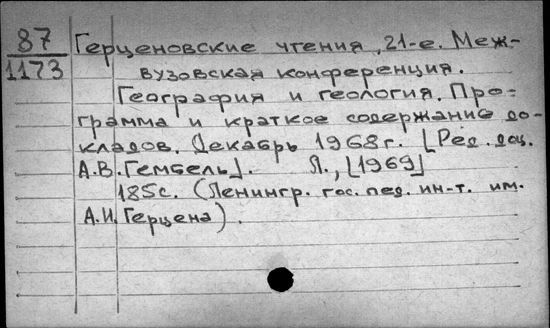 87 Герценовские чтения, 21-е. Меж-
1173 вузовская конференция.
География и геология. Про-
грамма и краткое содержание до-
кладов. Декабрь 1968г. [Ред. доц.
А.В. Гембель]. Л., [1969]
185с. (Ленингр. гос. пед. ин-т. им.
А.И. Герцена).